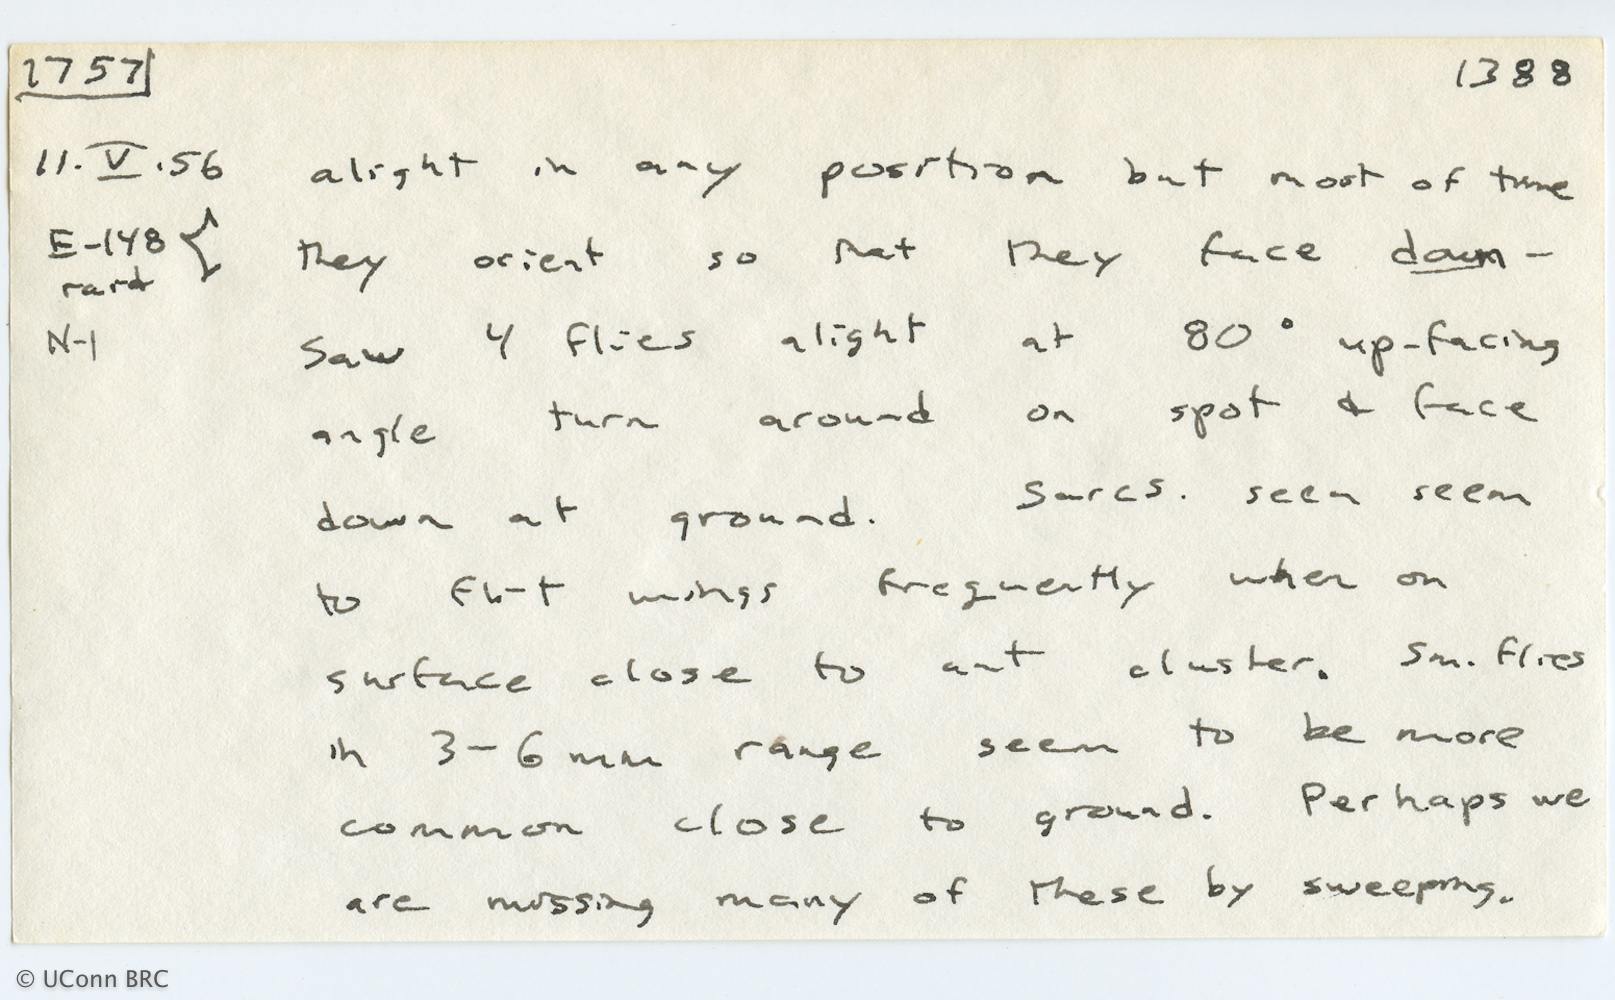 1757 1388
11.V.56 alight in any position but most of time
E-148 they orient so that they face down -
raid
N-1 Saw 4 flies alight at 80° up-facing
angle turn around on spot & face
down at ground. Sarcs. seen seem
to flit wings frequently when on
surface close to ant cluster. Sm. flies
in 3-6 mm range seem to be more
common close to ground. Perhaps we
are missing many of these by sweeping.
© UConn BRC